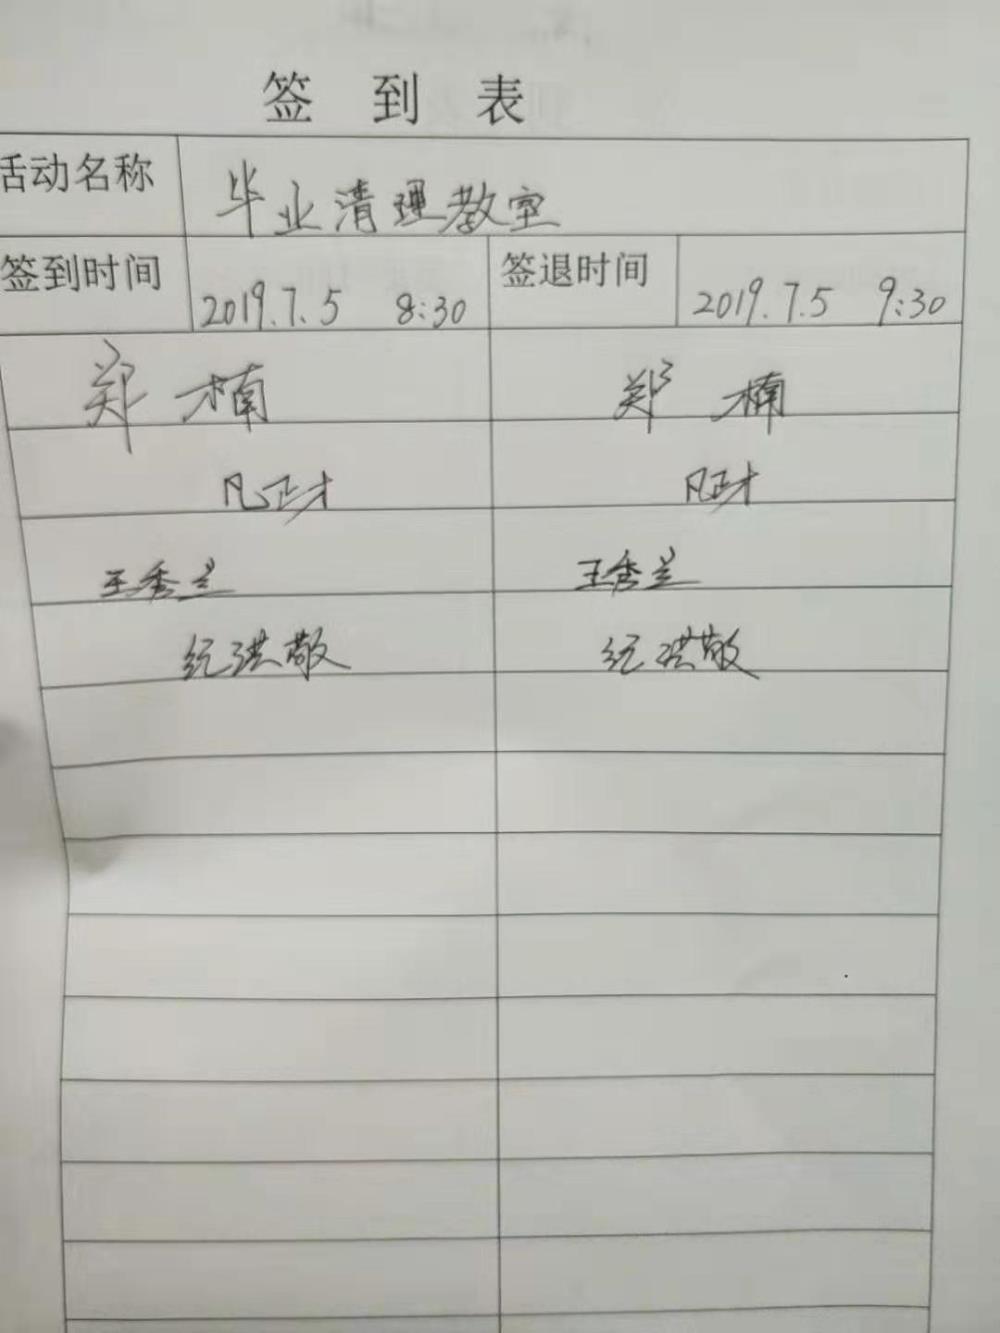 签到表
活动名称 毕业清理教室
签到时间 2019.7.5 8:30 签退时间 2019.7.5 9:30
郑楠 郑楠
凡正才 凡正才
王秀兰 王秀兰
纪洪敬 纪洪敬